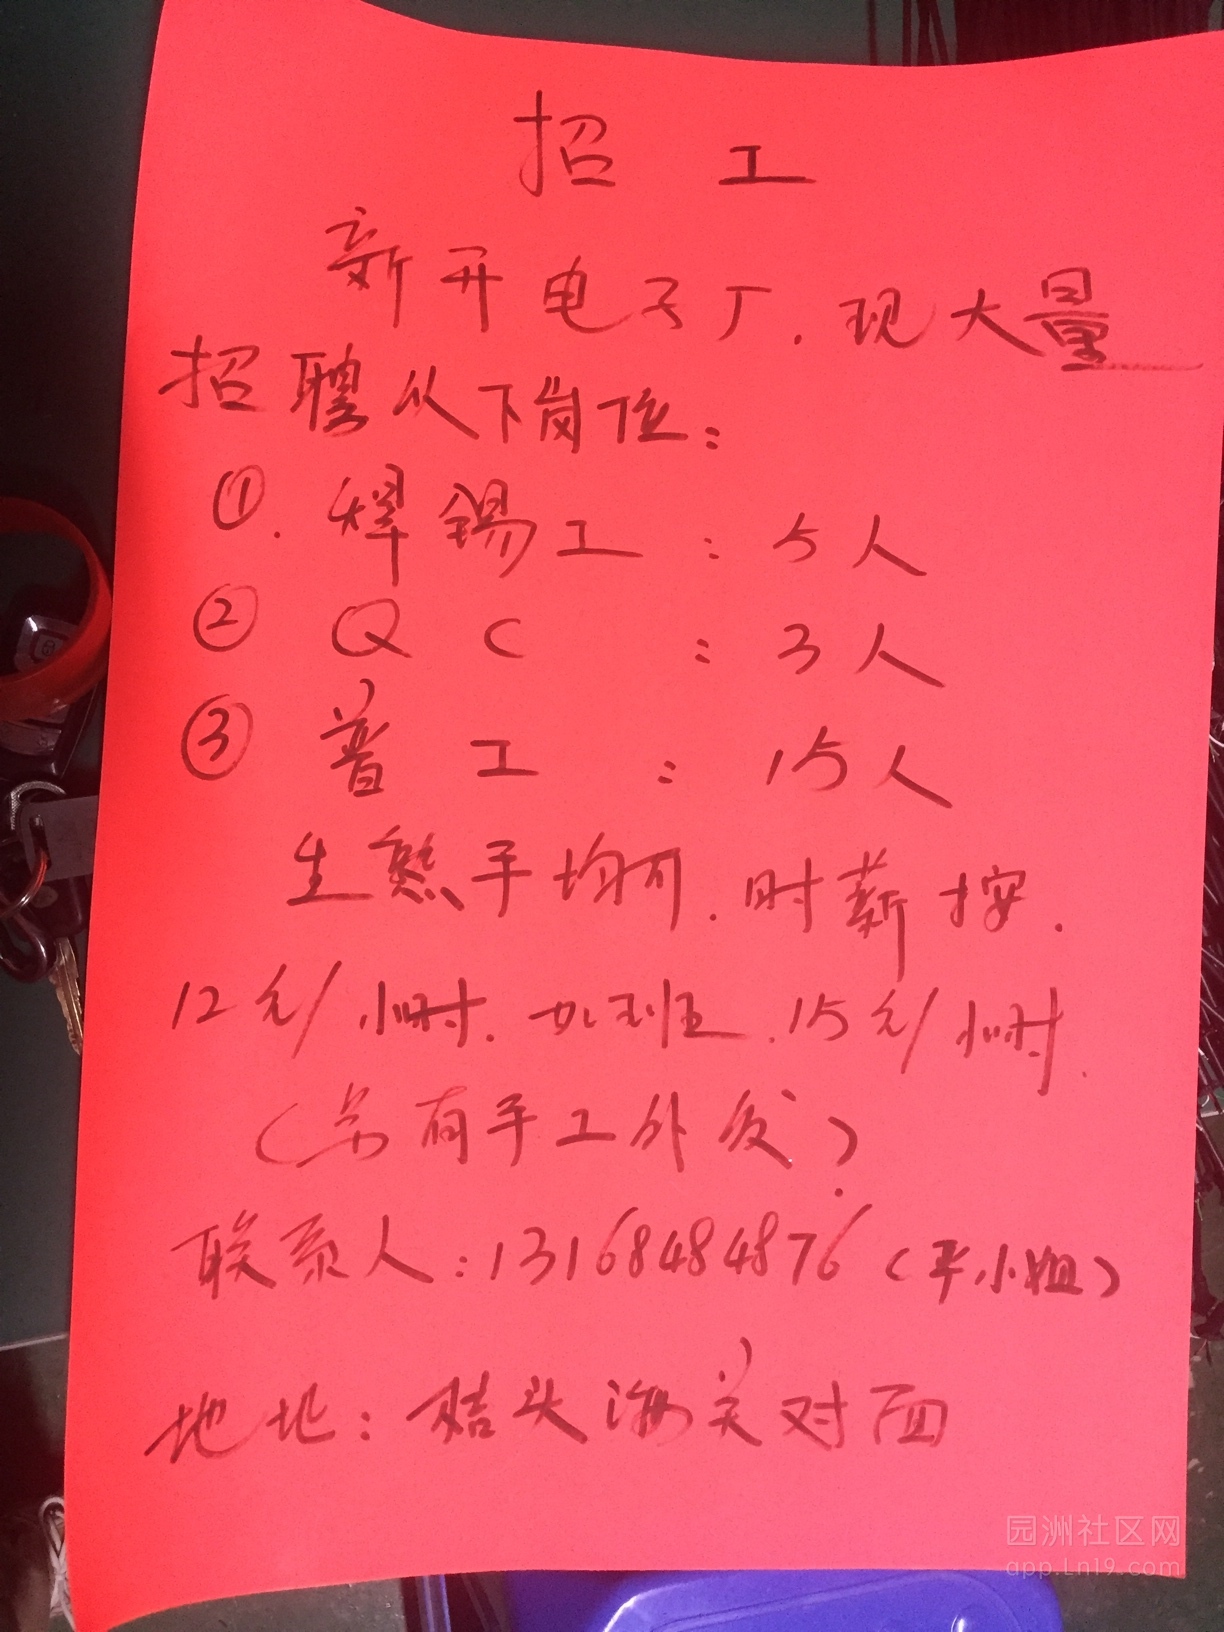 招 工
新开电子厂.现大量
招聘以下岗位:
①.焊锡工:5人
② QC:3人
③ 普工:15人
生熟手均可.时薪按.
12元/小时.加班.15元/小时.
(另有手工外发).
联系人:13168484876(平小姐)
地址:桔头海关对面
园洲社区网
app.Ln19.com